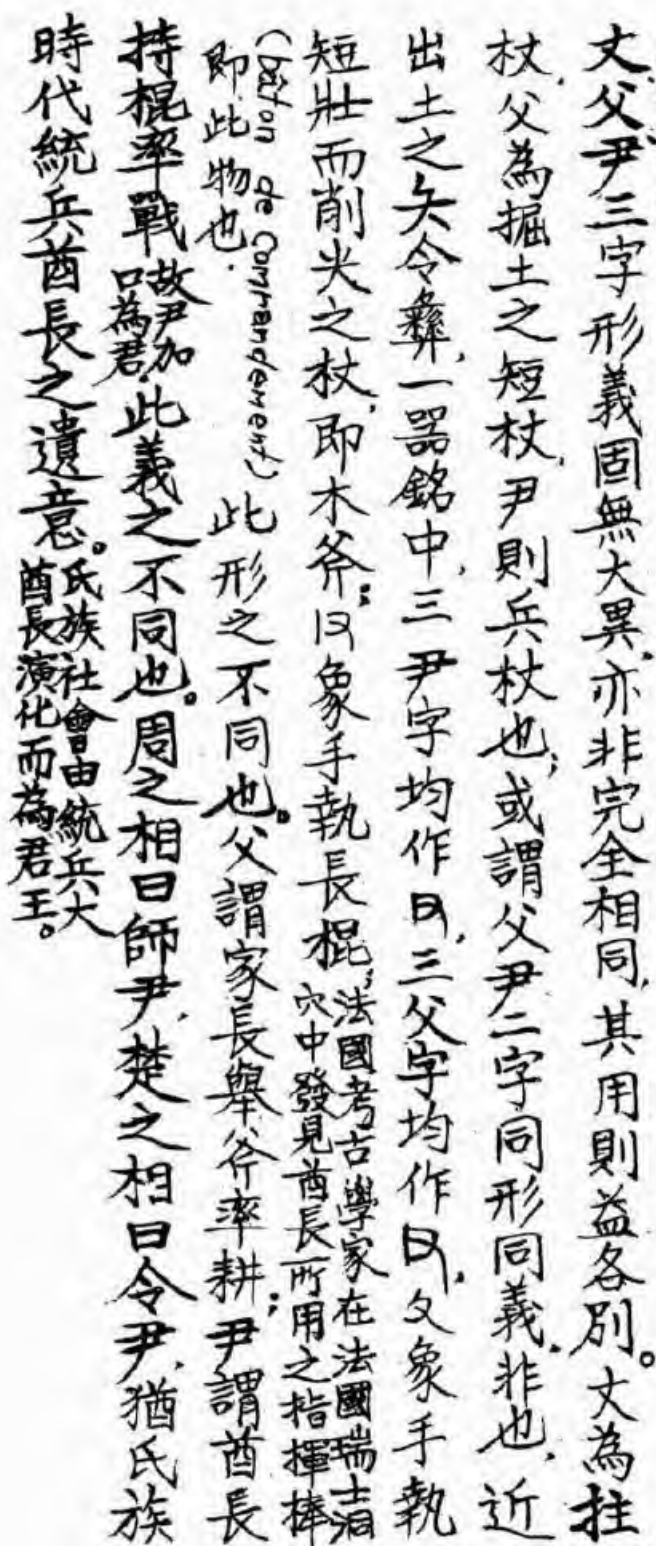 丈、父、尹三字形義固無大異,亦非完全相同,其用則益各別。丈為拄
杖,父為掘土之短杖,尹則兵杖也;或謂父尹二字同形同義,非也,近
出土之矢令彝,一器銘中,三尹字均作,三父字均作,象手執
短壯而削尖之杖,即木斧;象手執長棍;法國考古學家在法國瑞士洞
穴中發見酋長所用之指揮棒
(bâton de Commandement)
即此物也.
此形之不同也。父謂家長舉斧率耕;尹謂酋長
持棍率戰故尹加
口為君.此義之不同也。周之相曰師尹,楚之相曰令尹,猶氏族
時代統兵酋長之遺意。氏族社會由統兵大
酋長演化而為君王。